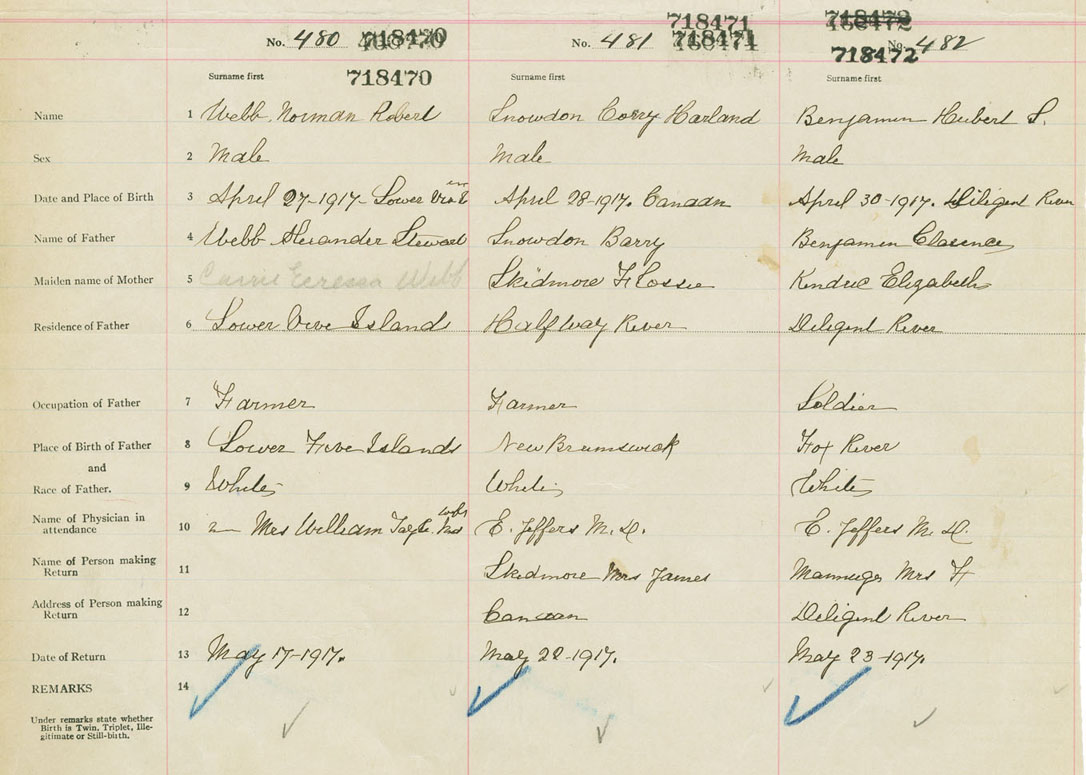 718471 718472
No. 480 718470 No. 481 718471 No. 482
718470 718472
Surname first Surname first Surname first
Name 1 Webb Norman Robert Snowdon Corry Harland Benjamin Hubert S.
Sex 2 Male Male Male
Date and Place of Birth 3 April 27-1917- Lower April 28-1917. Canaan April 30-1917. Diligent River
Name of Father 4 Webb Alexander Stewart Snowdon Barry Benjamin Clarence
Maiden name of Mother 5 Carrie Teressa Webb Skidmore Flossie Kendric Elizabeth
Residence of Father 6 Lower Five Island Halfway River Diligent River
Occupation of Father 7 Farmer Farmer Soldier
Place of Birth of Father 8 Lower Five Islands New Brunswick Fox River
and
Race of Father. 9 White White White
Name of Physician in
attendance 10 Mrs William E. Jeffers M.D. E. Jeffers M.D.
Name of Person making
Return 11 Skidmore Mrs James Mrs F
Address of Person making
Return 12 Canaan Diligent River
Date of Return 13 May 17-1917. May 22-1917. May 23-1917.
REMARKS 14
Under remarks state whether
Birth is Twin, Triplet, Ille-
gitimate or Still-birth.